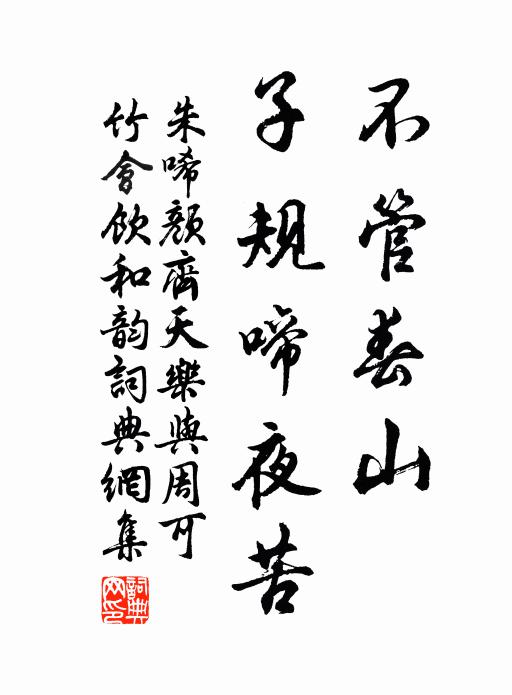 不管春山
子規啼夜苦
朱唏顏齊天樂與周可
竹會飲和韵詞典網集
詞典
网印